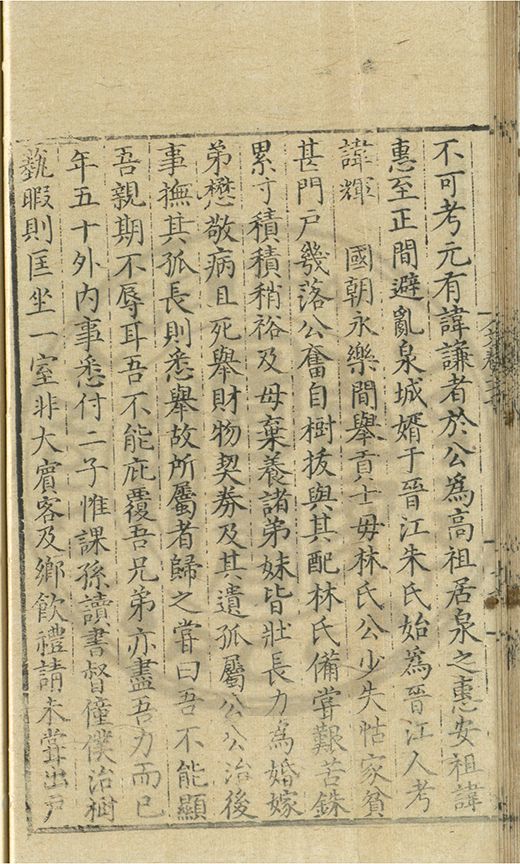 不可考元有諱謙者於公為高祖居泉之惠安祖諱
惠至正間避亂泉城婿于晉江朱氏始為晉江人考
諱輝　國朝永樂間舉貢士毋林氏公少失怙家貧
甚門戶幾落公奮自樹拔與其配林氏備嘗艱苦銖
累寸積積稍裕及毋棄養諸弟妹皆壯長力為婚嫁
弟懋敬病且死舉財物契券及其遺孤屬公公治後
事撫其孤長則悉舉故所屬者歸之嘗曰吾不能顯
吾親期不辱耳吾不能庇覆吾兄弟亦盡吾力而已
年五十外內事悉付二子惟課孫讀書督僮僕治樹
蓺暇則匡坐一室非大賓客及鄉飲禮請未嘗出戶